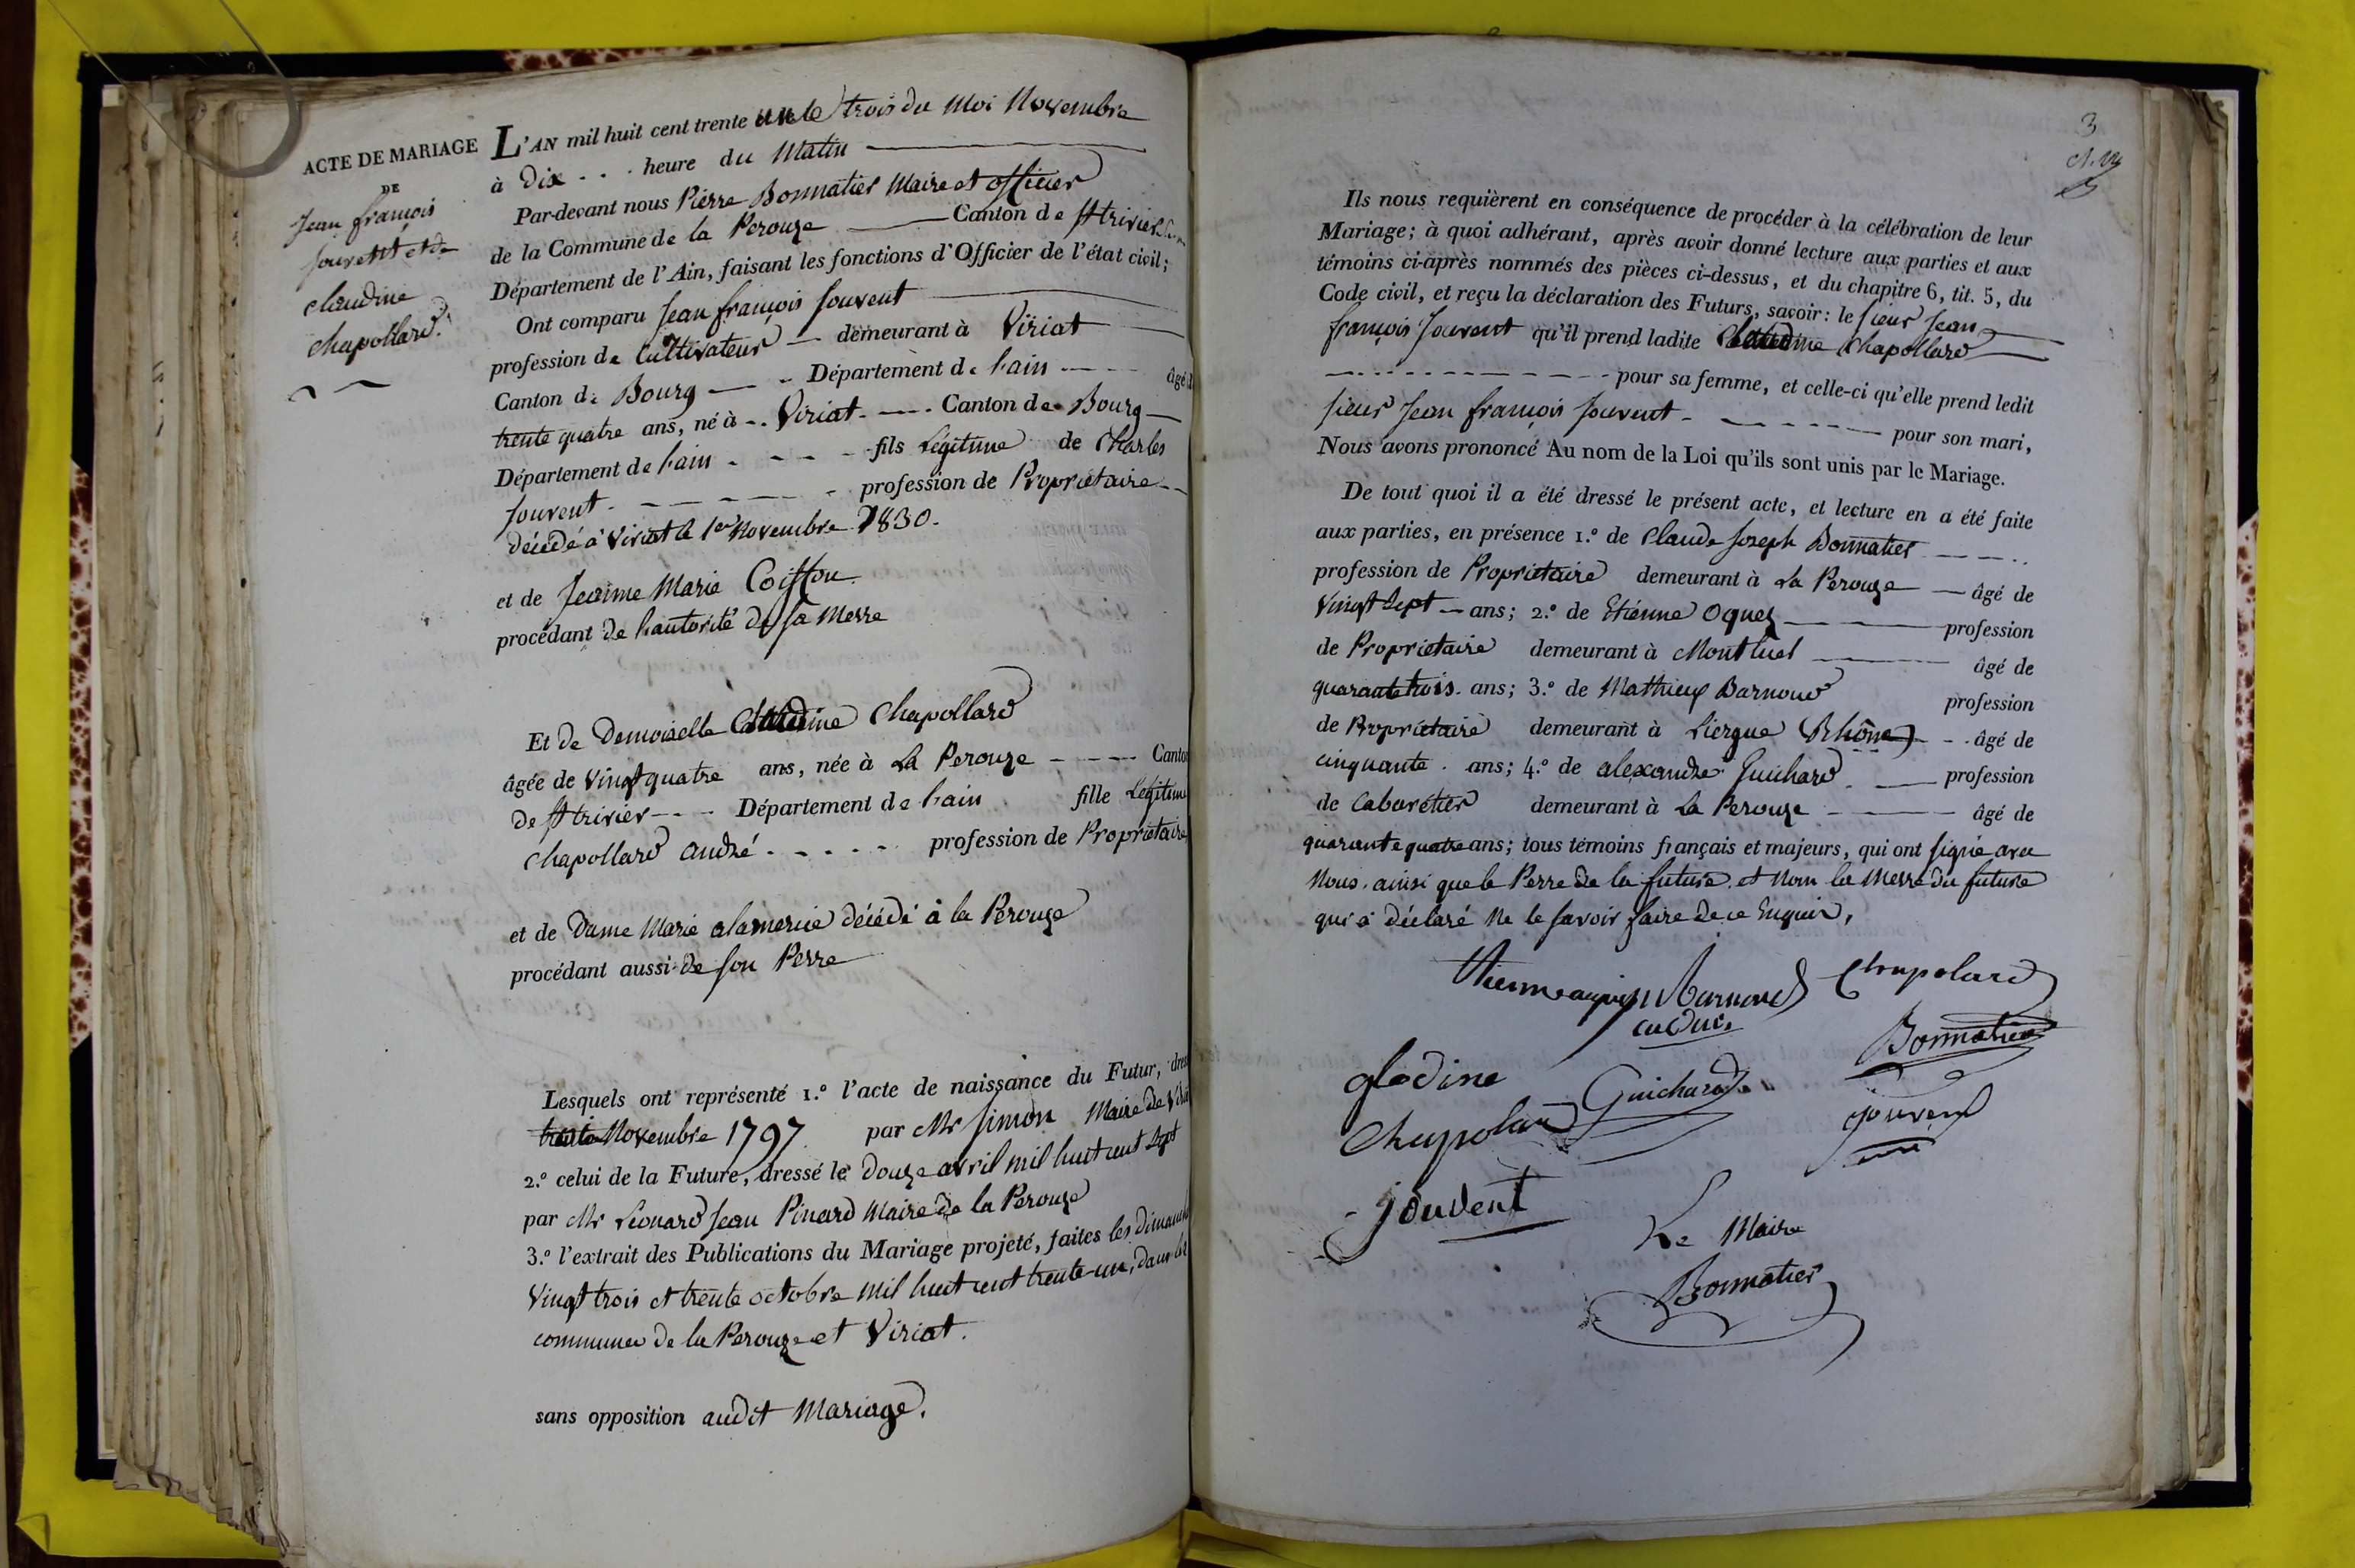 ACTE DE MARIAGE
DE
Jean françois
Jouvent et de
claudine
chapollard.
L'AN mil huit cent trente un le trois du Moi Novembre
à Dix . . . heure du Matin
Par-devant nous Pierre Bonnatier Maire et officier
de la Commune de la Perouze Canton de St trivier
Département de l'Ain, faisant les fonctions d'Officier de l'état civil;
Ont comparu Jean françois Jouvent
profession de Cultivateur demeurant à Viriat
Canton de Bourg Département de l'ain âgé d
trente quatre ans, né à Viriat Canton de Bourg
Département de l'ain fils Légitime de Charles
Jouvent profession de Propriétaire
décédé à Viriat le 1er Novembre 1830.
et de Jeanne Marie Coiffon
procédant de l'autorité de sa Merre
Et de Demoiselle Claudine Chapollard
âgée de Vingt quatre ans, née à La Perouze Canton
de St trivier Département de l'ain fille Légitime
Chapollard André profession de Propriétaire
et de Dame Marie alamercie décédé à la Perouze
procédant aussi de son Perre
Lesquels ont représenté 1.º l'acte de naissance du Futur, dres
trente Novembre 1797 par Mr Simon Maire de Viria
2.º celui de la Future, dressé le Douze avril mil huit cent Sept
par Mr Léonard Jean Pinard Maire de la Perouze
3.º l'extrait des Publications du Mariage projeté, faites les dimanch
Vingt trois et trente octobre mil huit cent trente-un, dans les
communes de la Perouze et Viriat.
sans opposition audit Mariage.
3
Ils nous requièrent en conséquence de procéder à la célébration de leur
Mariage; à quoi adhérant, après avoir donné lecture aux parties et aux
témoins ci-après nommés des pièces ci-dessus, et du chapitre 6, tit. 5, du
Code civil, et reçu la déclaration des Futurs, savoir: le sieur Jean
françois Jouvent qu'il prend ladite Claudine Chapollard
pour sa femme, et celle-ci qu'elle prend ledit
sieur Jean françois Jouvent pour son mari,
Nous avons prononcé Au nom de la Loi qu'ils sont unis par le Mariage.
De tout quoi il a été dressé le présent acte, et lecture en a été faite
aux parties, en présence 1.º de Claude Joseph Bonnatier
profession de Propriétaire demeurant à La Perouze âgé de
Vingt Sept ans; 2.º de Etiénne Oquez profession
de Propriétaire demeurant à Montluel âgé de
quarante trois ans; 3.º de Mathieux Barnoud profession
de Propriétaire demeurant à Liergue (Rhône) âgé de
cinquante ans; 4.º de alexandre Guichard profession
de Cabarétier demeurant à La Perouze âgé de
quarante quatre ans; tous témoins français et majeurs, qui ont signé avec
Nous. ainsi que le Perre de la future. et Nom la Merre du future
qui a déclaré Ne le savoir faire de ce Enquis,
Barnoud Chapolard
Bonnatier
glodine Guichard
Chapolard jouvent
jouvent
Le Maire
Bonnatier